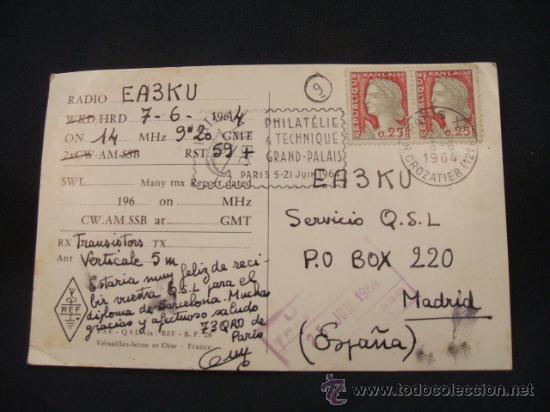 RADIO EA3KU
WKD HRD 7-6- 1964
ON 14 MHz 9"20 GMT
2xCW-AM-SSB RST 59+
SWL Many tnx Report dated
196 on MHz
CW.AM.SSB at GMT
RX Transistors TX
Ant Verticale 5 m
Estaria muy feliz de reci-
bir vuestra Q.S.L para el
diploma de Barcelona. Muchas
gracias y afectuoso saludo
73QRO de
Paris
REF
REF - B.P.
Versailles-Seine et Oise - France
9
PHILATÉLIE
& TECHNIQUE
GRAND-PALAIS
PARIS 5-21 JUIN 1964
REPUBLIQUE FRANÇAISE
0,25
REPUBLIQUE FRANÇAISE
0,25
1964
R. CROZATIER (12e)
EA3KU
Servicio Q.S.L
P.O BOX 220
Madrid
(España)
JUN 1964
todocoleccion.net